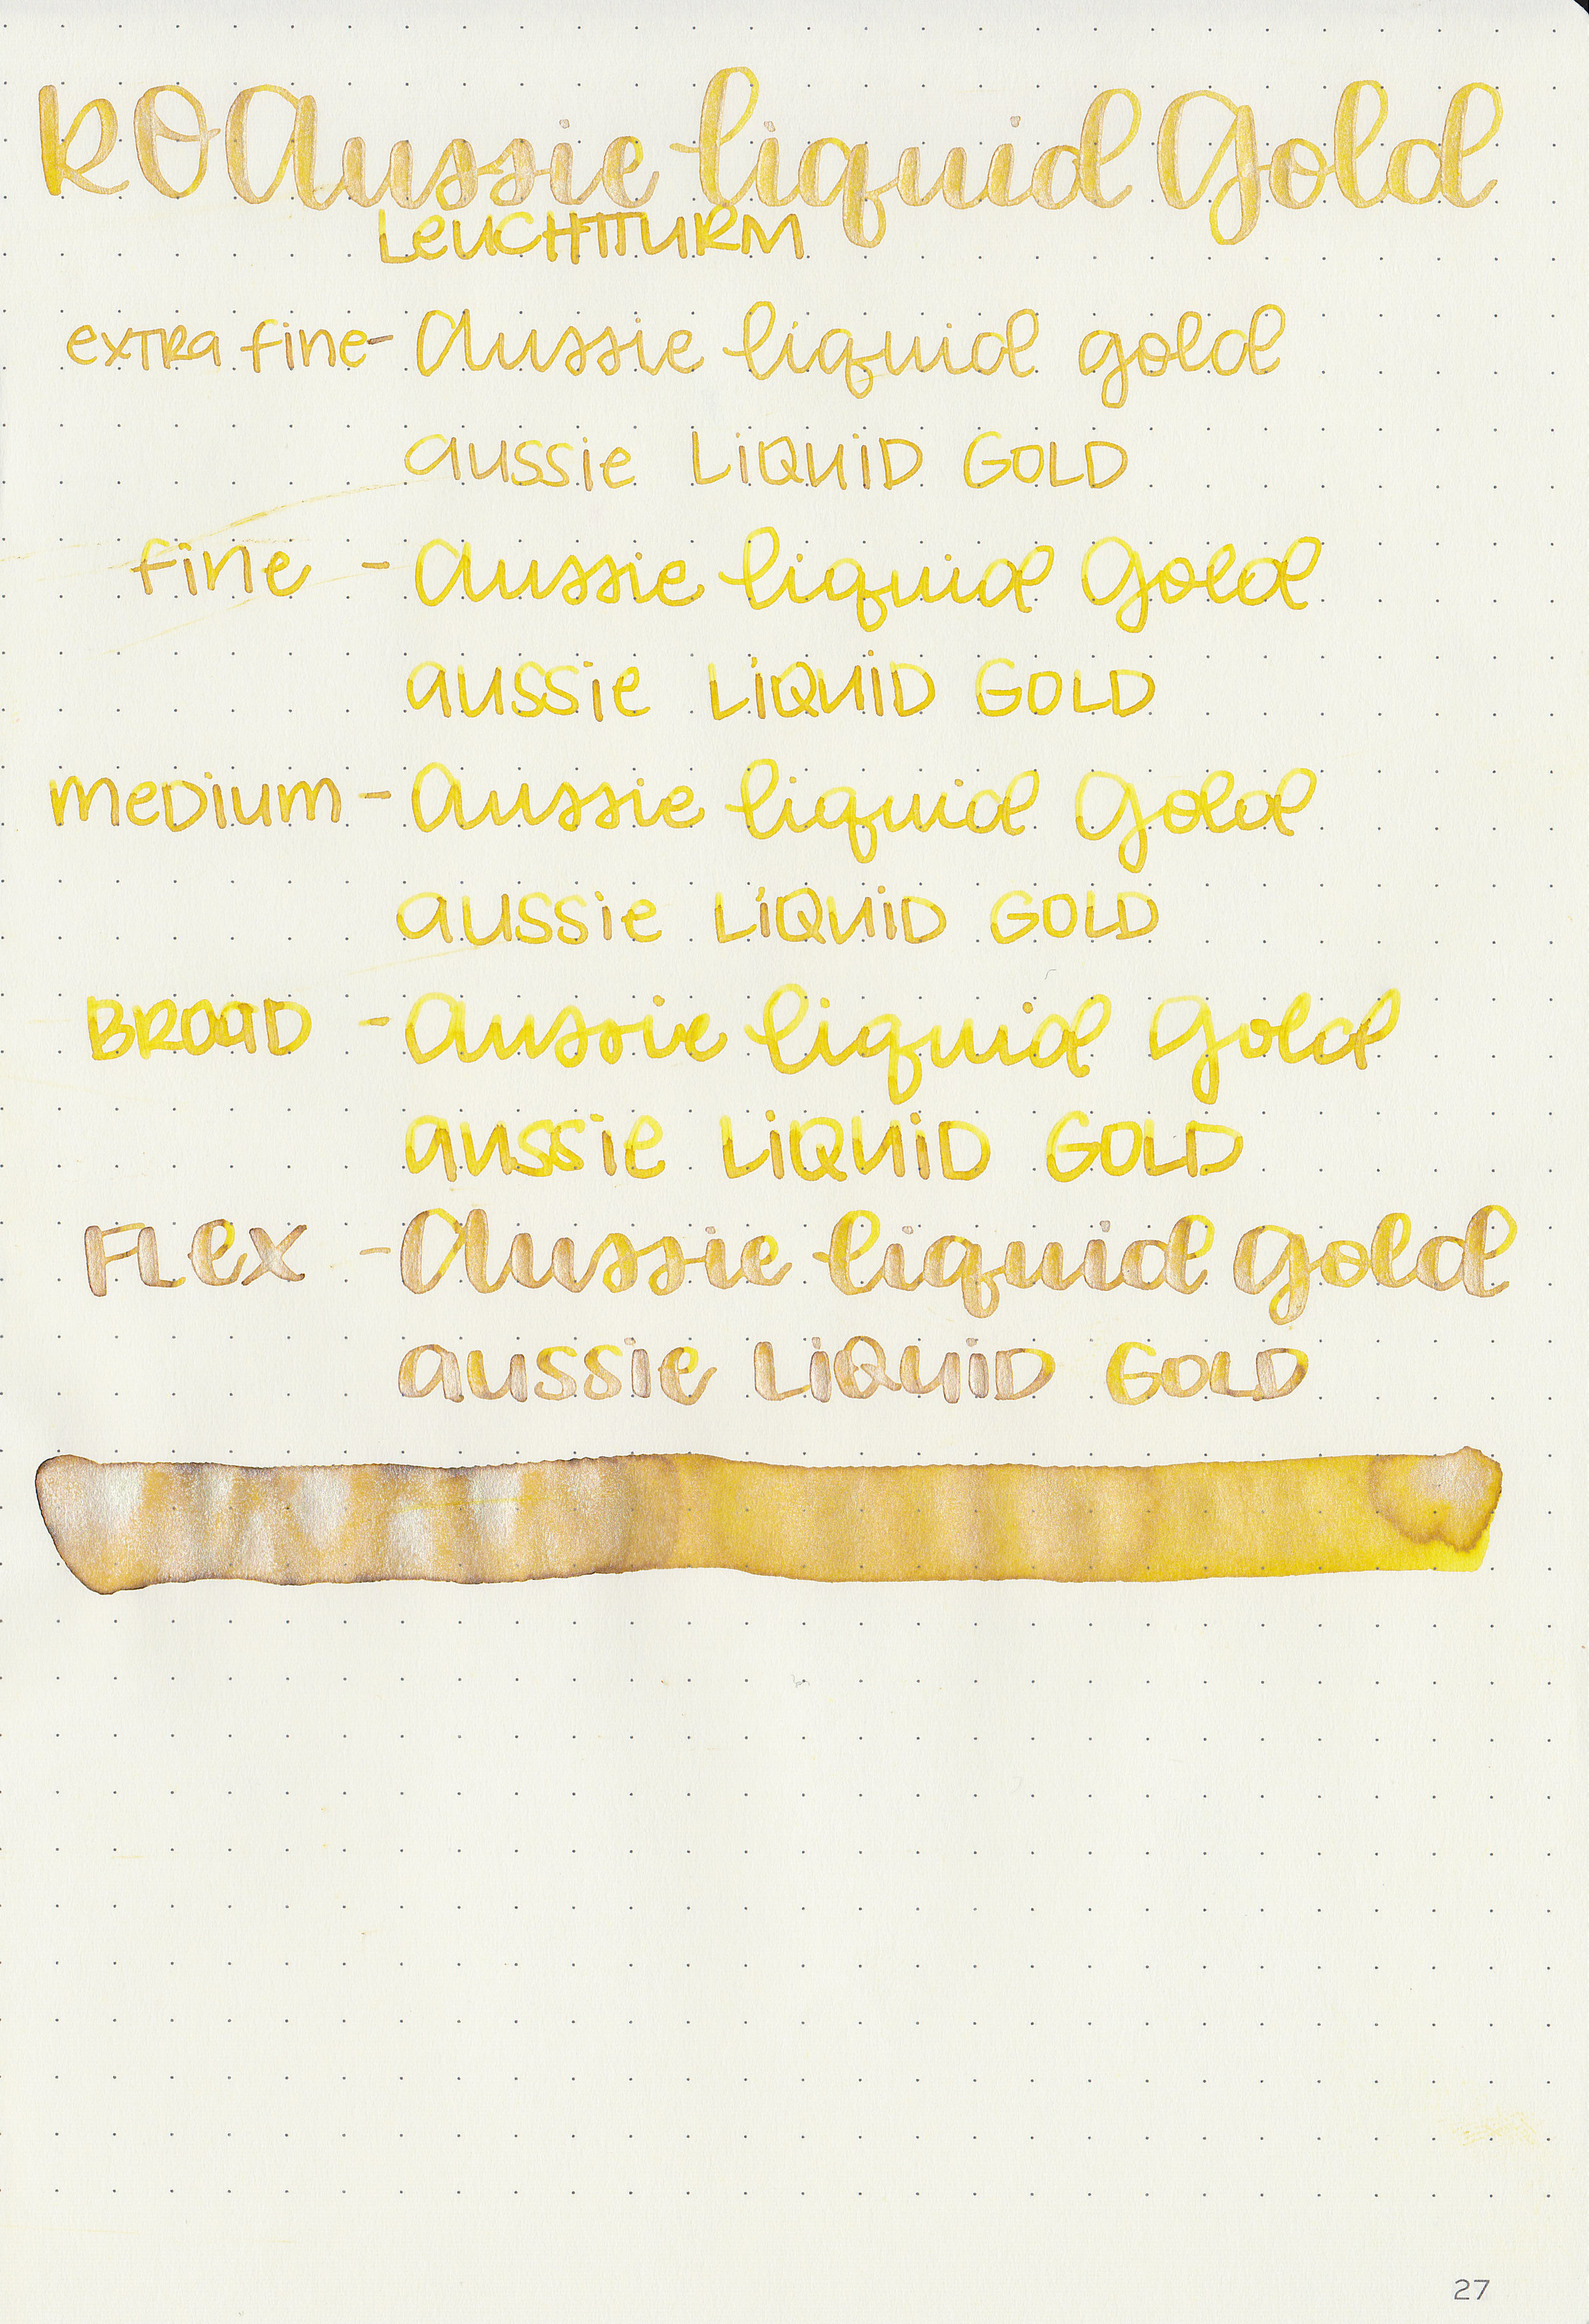 RO Aussie liquid Gold
LEUCHTTURM
extra fine - Aussie liquid gold
aussie LiQUiD GOLD
fine - Aussie liquid Gold
aussie LiQUiD GOLD
meDium - Aussie liquid Gold
aussie LiQUiD GOLD
BROAD - Aussie liquid Gold
aussie LiQUiD GOLD
FLex - Aussie liquid Gold
aussie LiQUiD GOLD
27